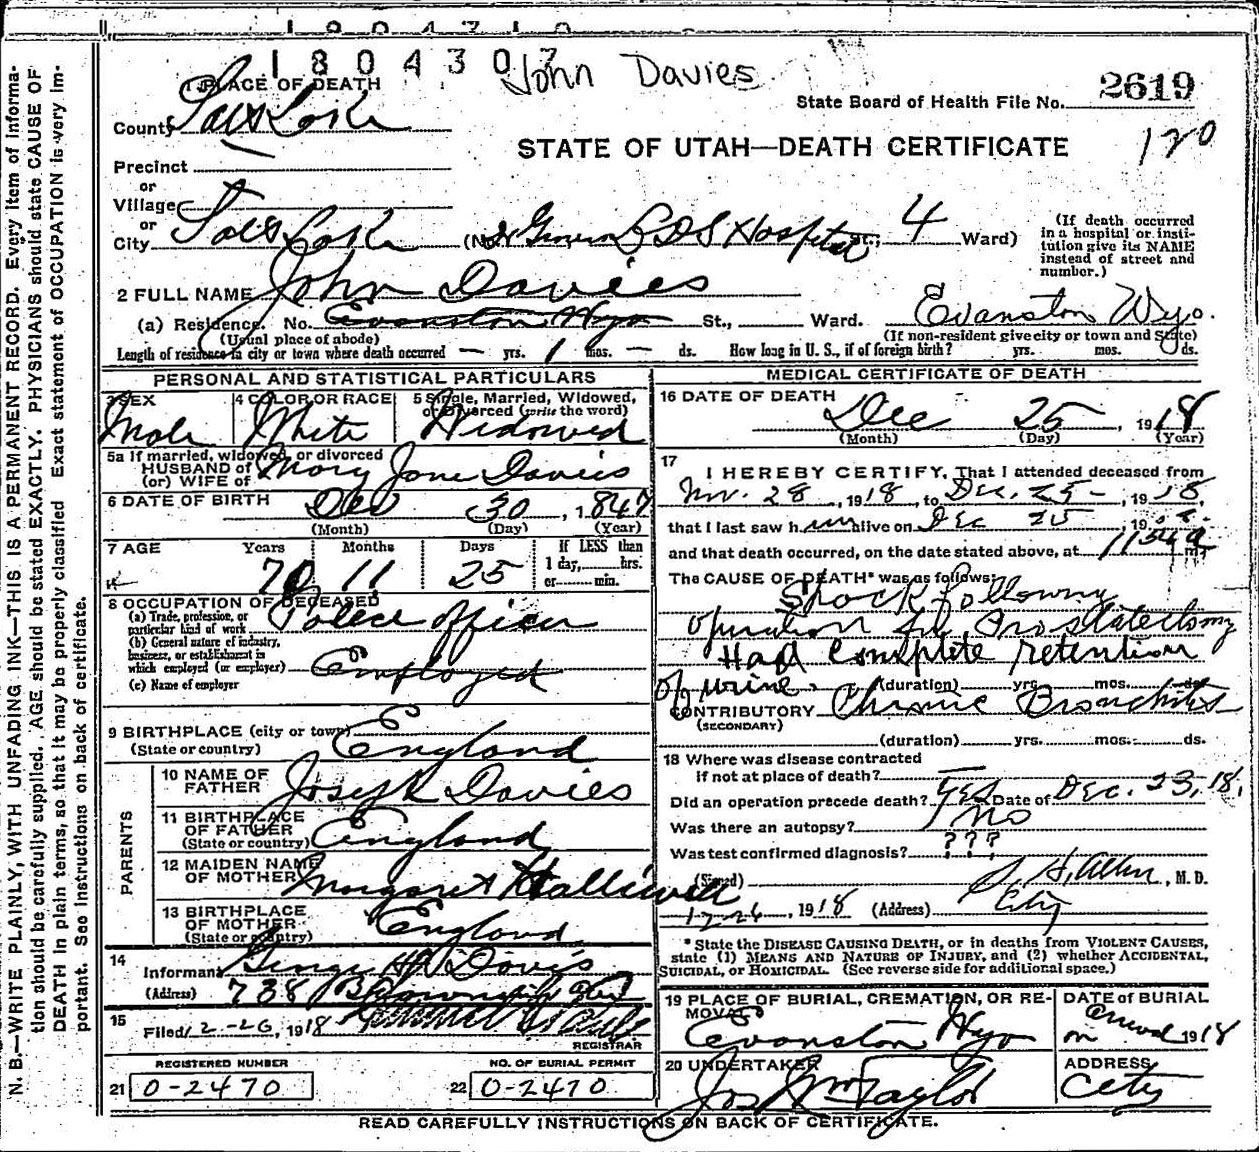 1804307
John Davies
1 PLACE OF DEATH
State Board of Health File No. 2619
County Salt Lake
STATE OF UTAH—DEATH CERTIFICATE
120
Precinct
or
Village
or
City Salt Lake (No. LDS Hospital St.; 4 Ward)
(If death occurred in a hospital or institution give its NAME instead of street and number.)
2 FULL NAME John Davies
(a) Residence. No. Evanston Wyo St., Ward. Evanston Wyo.
(Usual place of abode) (If non-resident give city or town and State)
Length of residence in city or town where death occurred — yrs. 1 mos. — ds. How long in U. S., if of foreign birth? yrs. mos. ds.
PERSONAL AND STATISTICAL PARTICULARS
3 SEX Male
4 COLOR OR RACE White
5 Single, Married, Widowed, or Divorced (write the word) Widowed
5a If married, widowed, or divorced
HUSBAND of
(or) WIFE of Mary Jane Davies
6 DATE OF BIRTH Dec 30, 1847
(Month) (Day) (Year)
7 AGE Years 70 Months 11 Days 25
If LESS than 1 day, hrs. or min.
8 OCCUPATION OF DECEASED
(a) Trade, profession, or particular kind of work Police officer
(b) General nature of industry, business, or establishment in which employed (or employer) Employed
(c) Name of employer
9 BIRTHPLACE (city or town)
(State or country) England
PARENTS
10 NAME OF FATHER Joseph Davies
11 BIRTHPLACE OF FATHER
(State or country) England
12 MAIDEN NAME OF MOTHER Margaret Halliwell
13 BIRTHPLACE OF MOTHER
(State or country) England
14
Informant George H Davis
(Address) 738
15
Filed 12-26, 1918
REGISTRAR
REGISTERED NUMBER
21 0-2470
NO. OF BURIAL PERMIT
22 0-2470
MEDICAL CERTIFICATE OF DEATH
16 DATE OF DEATH
Dec 25 1918
(Month) (Day) (Year)
17
I HEREBY CERTIFY, That I attended deceased from
Nov. 28, 1918, to Dec. 25-, 1918,
that I last saw h im alive on Dec 25, 19
and that death occurred, on the date stated above, at m.
The CAUSE OF DEATH* was as follows:
Shock following
operation for Prostatectomy
Had complete retention
of urine. (duration) yrs. mos. ds.
CONTRIBUTORY Chronic Bronchitis
(SECONDARY)
(duration) yrs. mos. ds.
18 Where was disease contracted
if not at place of death? —
Did an operation precede death? Yes Date of Dec. 23, 18.
Was there an autopsy? No
Was test confirmed diagnosis? ???
(Signed) S. H. Allen, M. D.
12-26, 1918 (Address) City
*State the DISEASE CAUSING DEATH, or in deaths from VIOLENT CAUSES, state (1) MEANS AND NATURE OF INJURY, and (2) whether ACCIDENTAL, SUICIDAL, or HOMICIDAL. (See reverse side for additional space.)
19 PLACE OF BURIAL, CREMATION, OR REMOVAL
Evanston Wyo
DATE of BURIAL
1918
20 UNDERTAKER
Jos Wm Taylor
ADDRESS
City
READ CAREFULLY INSTRUCTIONS ON BACK OF CERTIFICATE.
N. B.—WRITE PLAINLY, WITH UNFADING INK—THIS IS A PERMANENT RECORD. Every item of information should be carefully supplied. AGE should be stated EXACTLY. PHYSICIANS should state CAUSE OF DEATH in plain terms, so that it may be properly classified Exact statement of OCCUPATION is very important. See instructions on back of certificate.